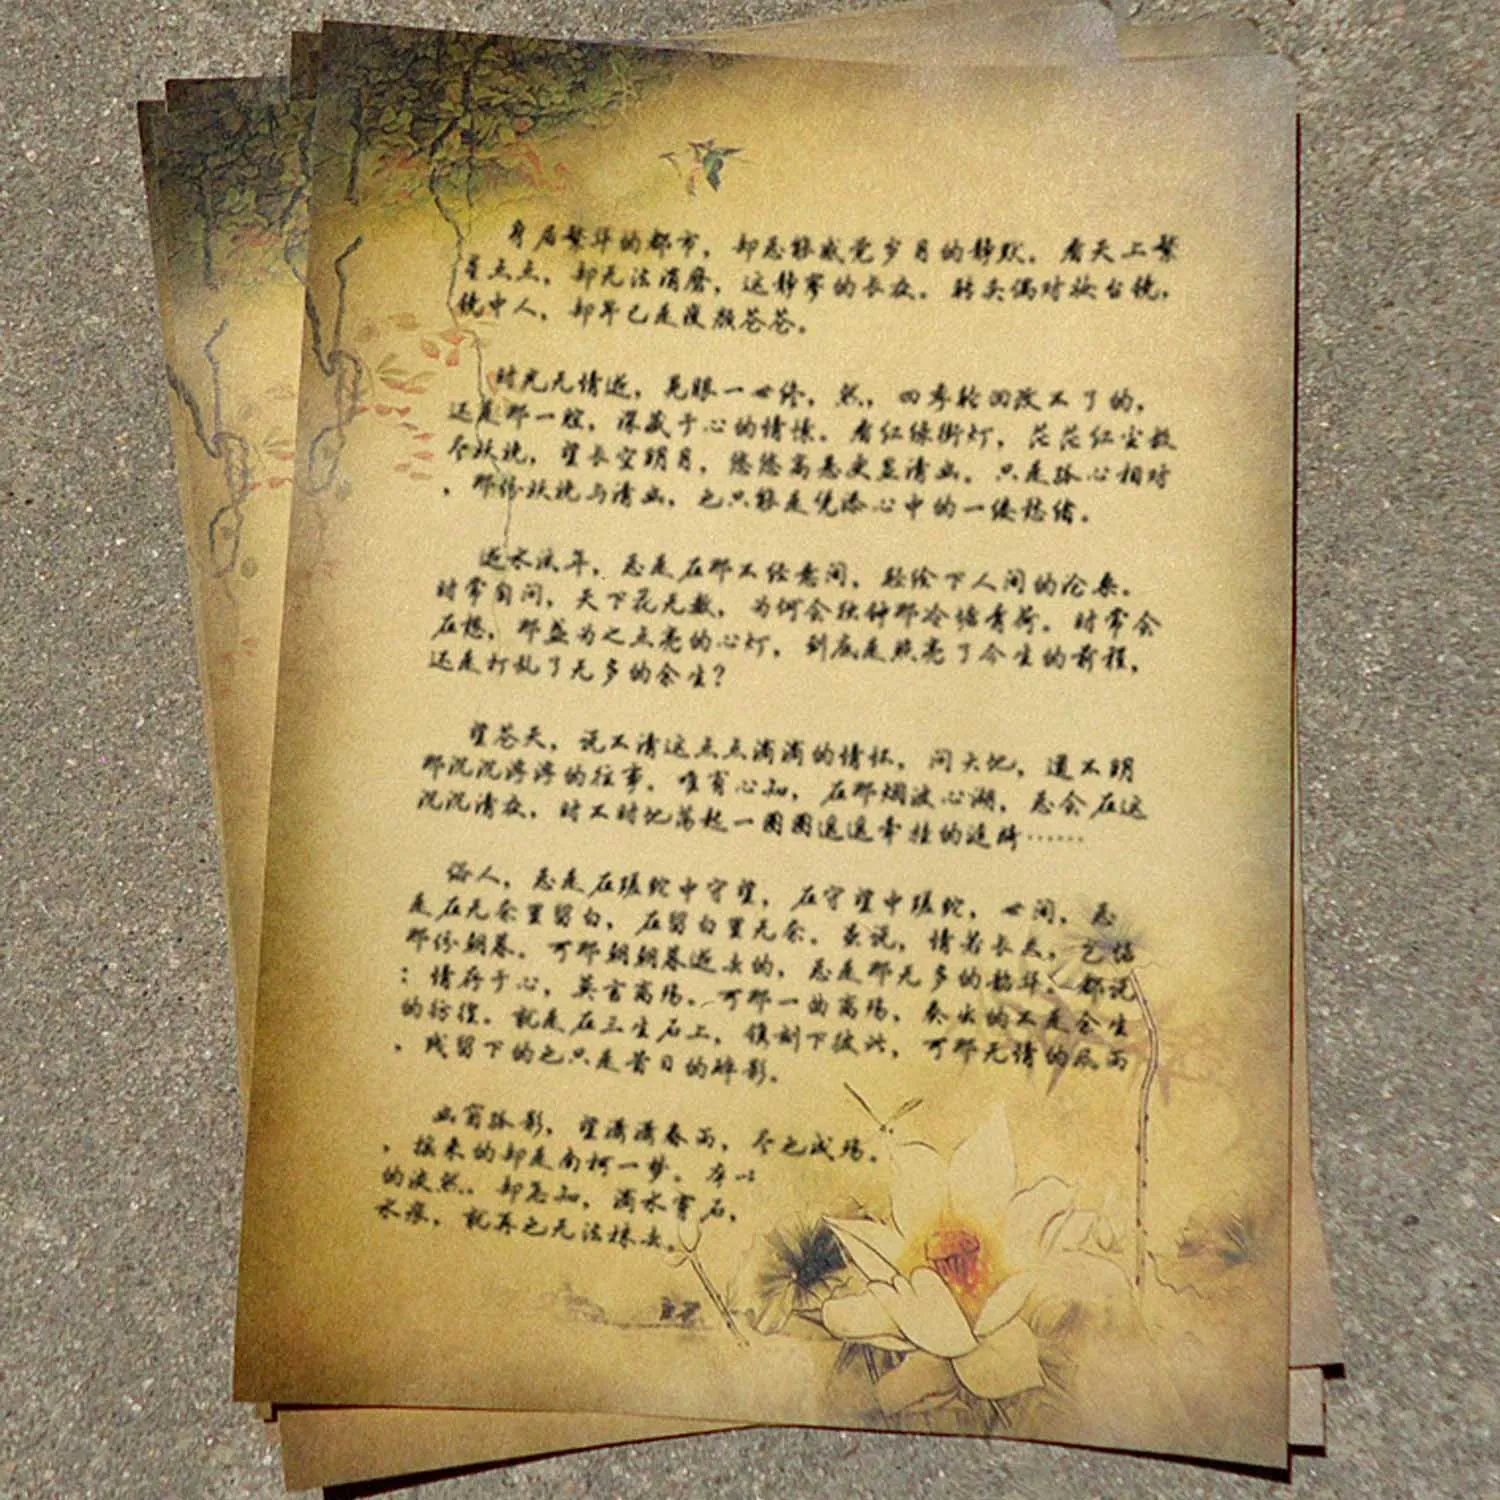 身居繁华的都市，却总能感觉岁月的静默。看天上繁
星点点，却无法消磨，这静寥的长夜。转头偶对妆台镜，
镜中人，却早已是瘦颜苍苍。
时光无情逝，晃眼一世修，然，四季轮回改不了的，
还是那一腔，深藏于心的情愫。看红绿街灯，茫茫红尘数
尽妖娆，望长空明月，悠悠高悬更显清幽。只是孤心相对
，那份妖娆与清幽，也只能是凭添心中的一缕愁绪。
逝水流年，总是在那不经意间，轻绘下人间的沧桑。
时常自问，天下花无数，为何会独钟那冷塘青荷。时常会
在想，那盏为之点亮的心灯，到底是照亮了今生的前程，
还是打乱了无多的余生？
望苍天，说不清这点点滴滴的情怀，问大地，道不明
那沉沉浮浮的往事。唯有心知，在那烟波心湖，总会在这
沉沉清夜，时不时地荡起一圈圈遥遥牵挂的涟漪……
俗人，总是在蹉跎中守望，在守望中蹉跎，世间，总
是在无奈里留白，在留白里无奈。虽说，情若长久，岂惦
那份朝暮。可那朝朝暮逝去的，总是那无多的韶华。都说
：情存于心，莫言离殇。可那一曲离殇，奏出的不是余生
的彷徨。就是在三生石上，镌刻下彼此，可那无情的风雨
，残留下的也只是昔日的碎影。
幽窗孤影，望潇潇春雨，尽也成殇。
，换来的却是南柯一梦。
的凌然。却怎知，滴水穿石，
水痕，就再也无法抹去。